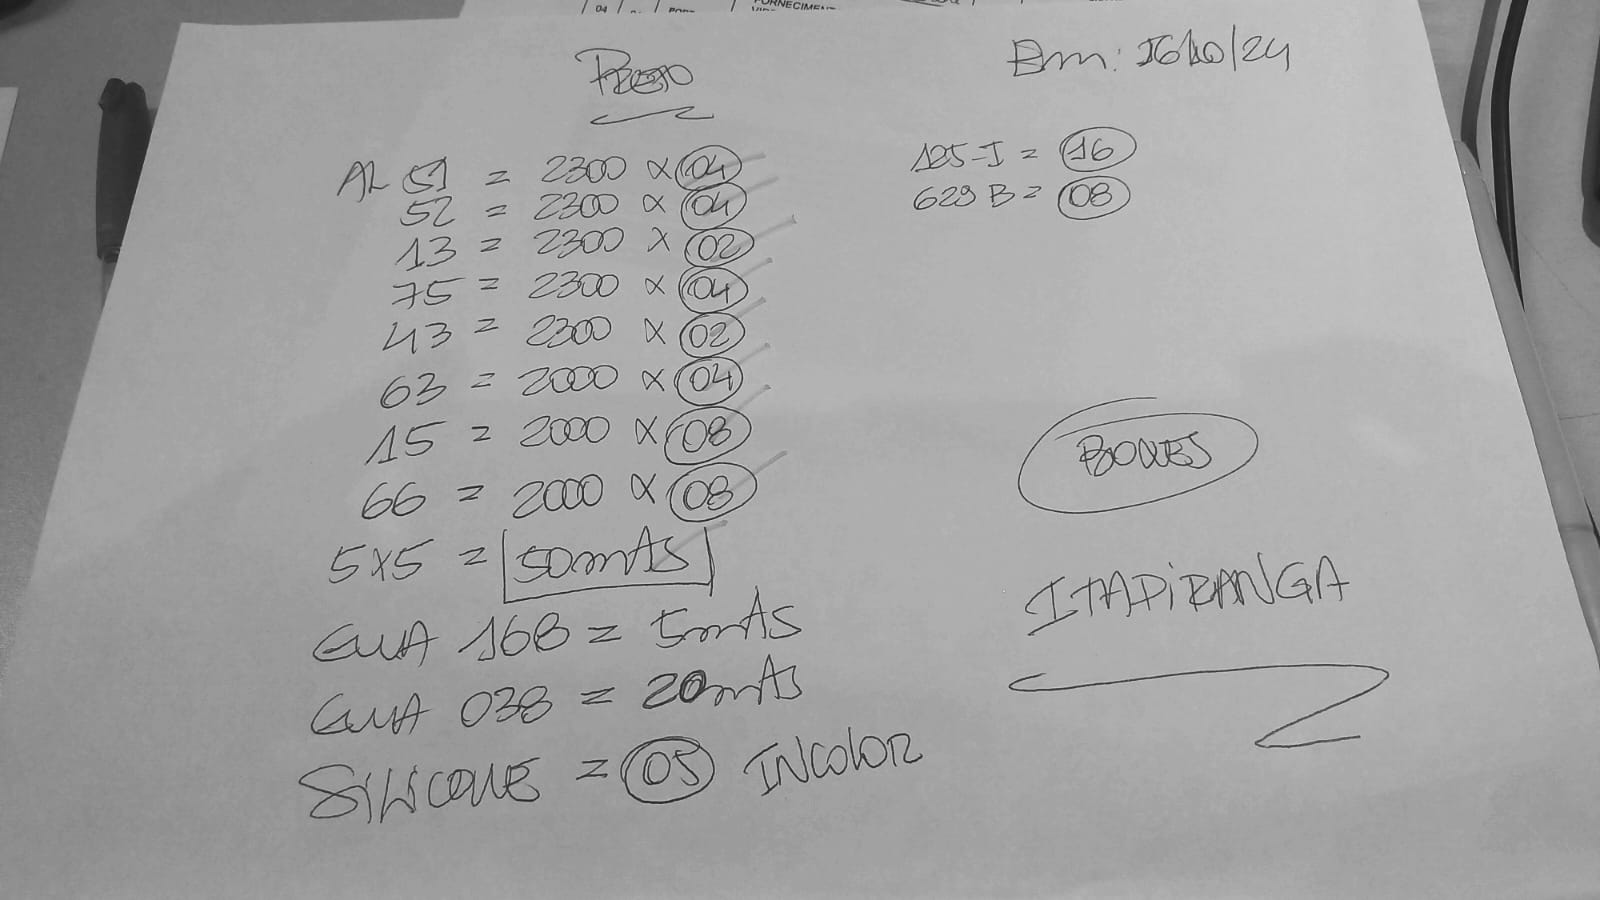 04
FORNECIMEN
PRETO
Em: 16/10/24
AL 51 = 2300 x 04
52 = 2300 x 04
13 = 2300 x 02
75 = 2300 x 04
43 = 2300 x 02
63 = 2000 x 04
15 = 2000 x 08
66 = 2000 x 08
5x5 = 50mts
GUIA 168 = 5mts
GUIA 038 = 20mts
SILICONE = 05 INCOLOR
125-I = 16
629 B = 08
BOXES
ITAPIRANGA